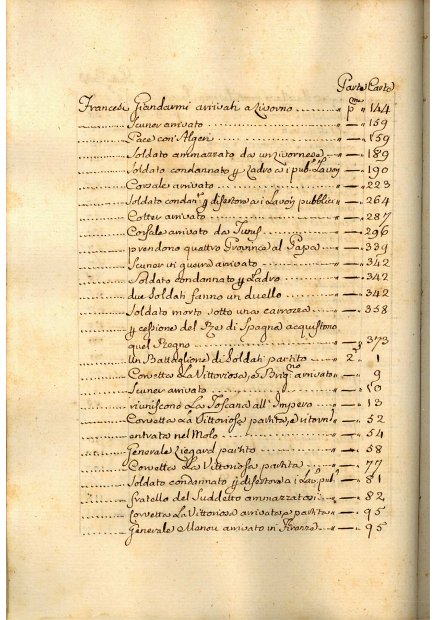 Parte Carte
Francesi Giandarmi arrivati a Livorno p.me 144
Scuner arrivato 159
Pace con Algeri 159
Soldato ammazzato da un Livornese 189
Soldato condannato p Ladro a i pub. Lavori 190
Corsale arrivato 223
Soldato condan. p disertore a i Lavori pubblici 264
Cotter arrivato 287
Corsale arrivato da Tunis 296
prendono quattro Provincie al Papa 339
Scuner di guerra arrivato 342
Soldato condannato p Ladro 342
due Soldati fanno un duello 342
Soldato morto sotto una carrozza 358
p cessione del Re di Spagna acquistono
quel Regno 373
Un Battaglione di Soldati partito 2 1
Corvetta La Vittoriosa, e Brig.no arrivato 9
Scuner arrivato 10
riuniscono La Toscana all' Impero 13
Corvetta La Vittoriosa partita, e ritorn. 52
entrata nel Molo 54
Generale partito 58
Corvetta La Vittoriosa partita 77
Soldato condannato p disertore a i Lav. pub. 81
fratello del Suddetto ammazzatosi 82
Corvetta La Vittoriosa arrivata e partita 95
Generale Menou arrivato in Firenze 95